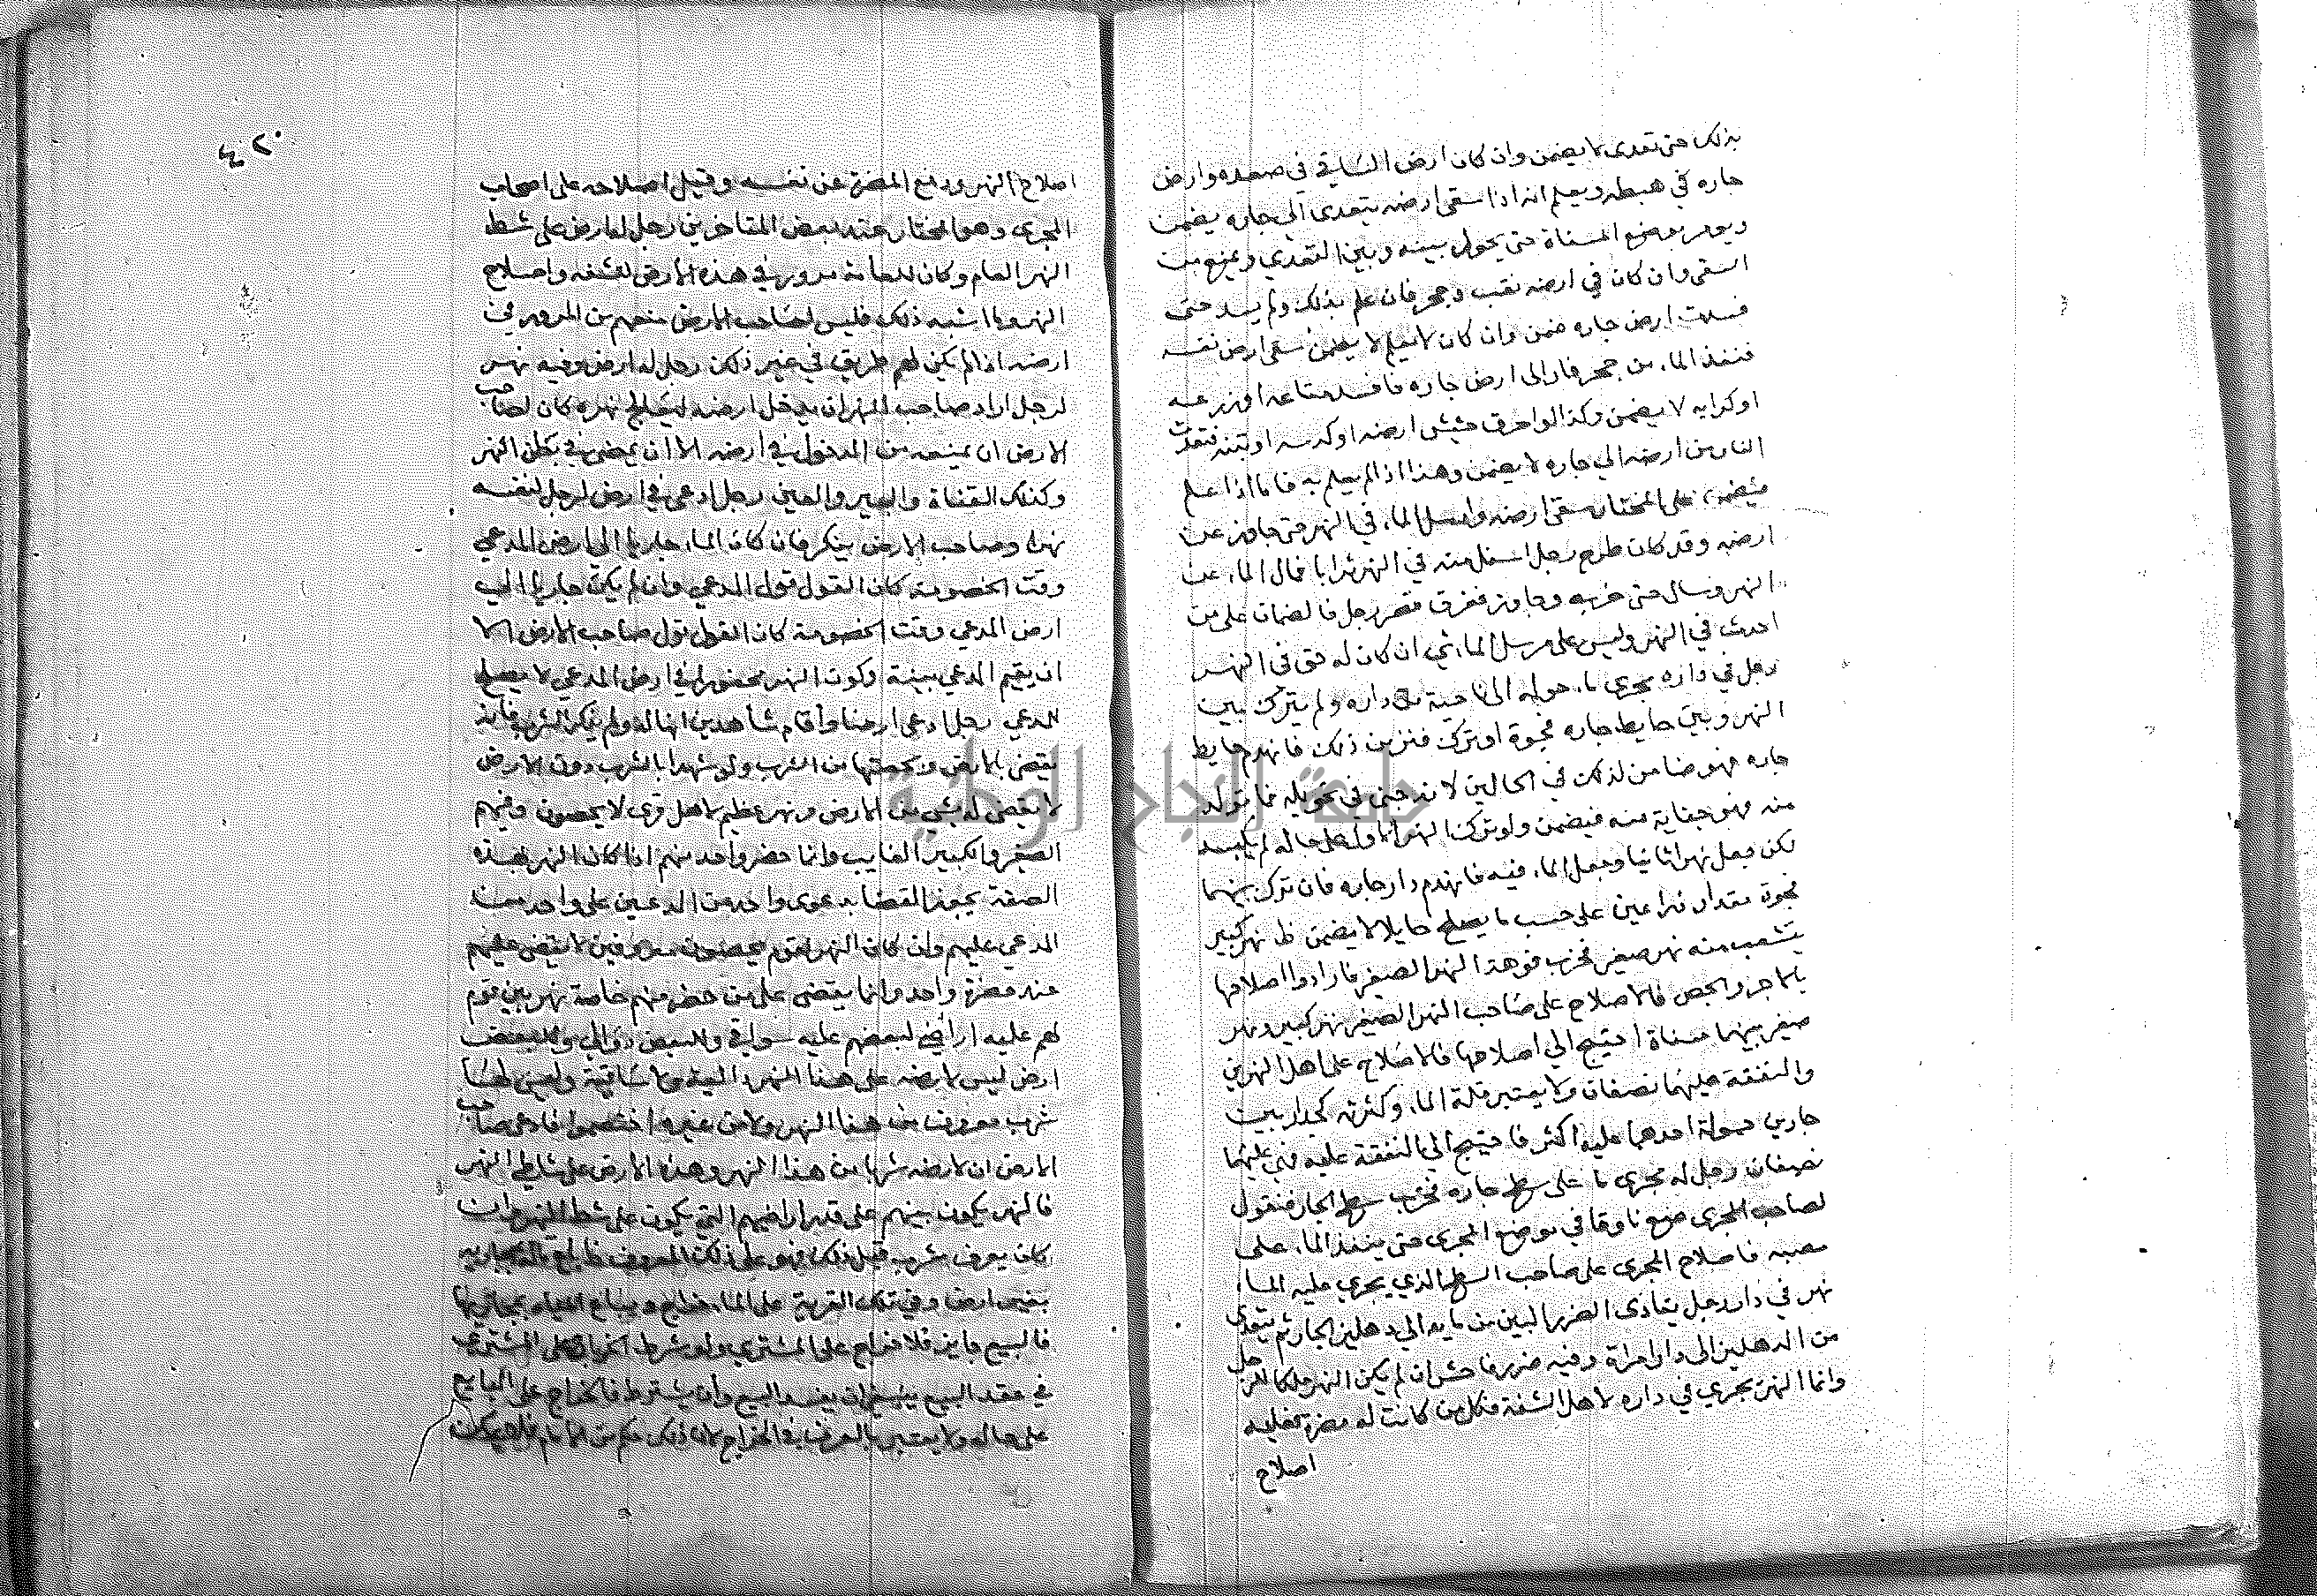 بذلك حتى تعدى لا يضمن وان كان ارض الساقي في صعده وارض
جاره في هبطه ويعلم انه اذا سقى ارضه يتعدى الى جاره يضمن
ويومر بوضع المسناة حتى يحول بينه وبين التعدي ويمنع من
السقى وان كان في ارضه نقب وجحر فان علم بذلك ولم يسد حتى
فسدت ارض جاره ضمن وان كان لا يعلم لا يضمن سقى ارض نفسه
فنفذ الماء من جحر فار الى ارض جاره فافسد متاعه او زرعه
او كرابه لا يضمن وكذا لو احرق حشيش ارضه او كدسه او تبنه فتعدت
النار من ارضه الي جاره لا يضمن وهذا اذا لم يعلم به فاما اذا علم
فيضمن على المختار سقى ارضه وارسل الماء في النهر حتى جاوز عن
ارضه وقد كان طرح رجل اسفل منه في النهر ترابا فمال الماء عن
النهر وسال حتى خربه وجاوز فغرق قصر رجل فالضمان على من
احدث في النهر وليس على مرسل الماء شي ان كان له حق في النهر
رجل في داره مجرى ماء حوله الى ناحية من داره ولم يترك بين
النهر وبين حايط جاره فجوة او ترك فنز من ذلك فانهدم حايط
جاره فهو ضامن لذلك في الحالين لانه جنى في تحويله فما تولد
منه فهو جناية منه فيضمن ولو ترك النهر الاول على حاله لم يكبسه
لكن جعل نهرا ثانيا وجعل الماء فيه فانهدم دار جاره فان ترك بينهما
فجوة مقدار ذراعين على حسب ما يصلح حايلا لا يضمن ظ نهر كبير
يتشعب منه نهر صغير فخرب فوهة النهر الصغير فارادوا اصلاحها
بالاجر والجص فالاصلاح على صاحب النهر الصغير نهر كبير ونهر
صغير بينهما مسناة احتيج الي اصلاحها فالاصلاح على اهل النهرين
والنفقة عليهما نصفان ولا يعتبر قلة الماء وكثرته كجدار بين
جارين حمولة احدهما عليه اكثر فاحتيج الى النفقة عليه فهي عليهما
نصفان رجل له مجرى ماء على سطح جاره فخرب سطح الجار فنقول
لصاحب المجرى ضع ناوقا في موضع المجرى حتى ينفذ الماء على
مصبه فاصلاح المجرى على صاحب السطح الذي يجري عليه الماء
نهر في دار رجل يتاذى الضرر البين من مايه الى دهليز الجار ثم يتعدى
من الدهليز الى دار امراة وفيه ضرر فاحش ان لم يكن النهر ملكا للرجل
وانما النهر يجري في داره لاهل الشفة فكل من كانت له مضرة فعليه
اصلاح
٤٢٠
اصلاح النهر ودفع المضرة عن نفسه وقيل اصلاحه على اصحاب
المجرى وهو المختار عند بعض المتاخرين رجل له ارض على شط
النهر العام وكان للعامة مرور في هذه الارض لشفه واصلاح
النهر وما اشبه ذلك فليس لصاحب الارض منعهم من المرور في
ارضه اذا لم يكن لهم طريق في غير ذلك رجل له ارض وفيه نهر
لرجل اراد صاحب النهر ان يدخل ارضه ليعالج نهره كان لصاحب
الارض ان يمنعه من الدخول في ارضه الا ان يمضي في بطن النهر
وكذلك القناة والبير والعين رجل ادعى في ارض لرجل لنفسه
نهرا وصاحب الارض ينكر فان كان الماء جاريا الي ارض المدعي
وقت الخصومة كان القول قول المدعي وان لم يكن جاريا الى
ارض المدعي وقت الخصومة كان القول قول صاحب الارض الا
ان يقيم المدعي بينة وكون النهر محفورا في ارض المدعي لا يصلح
للمدعي رجل ادعى ارضا واقام شاهدين انها له ولم يذكر الشرب فانه
يقضى بالارض وبحصتها من الشرب ولو شهدا بالشرب دون الارض
لا يقضى له بشي من الارض ونهر عظيم لاهل قرى لا يحصون وفيهم
الصغير والكبير الغايب وانما حضر واحد منهم اذا كان النهر بهذه
الصفة يجوز القضا بدعوى واحد من المدعين على واحد من
المدعي عليهم وان كان النهر لقوم يحصون معروفين لا يقضى عليهم
عند حضرة واحد وانما يقضى على من حضر منهم خاصة نهر بين قوم
لهم عليه اراضي لبعضهم عليه سواقي وللبعض دوالي وللبعض
ارض ليس لارضه على هذا النهر دالية ولا ساقية وليس لها
شرب معروف من هذا النهر ولا من غيره اختصموا فادعى صاحب
الارض ان لارضه شربا من هذا النهر وهذه الارض على شاطي النهر
فالنهر يكون بينهم على قدر اراضيهم التي يكون على شط النهر وان
كان يعرف شرب قبل ذلك فهو على ذلك المعروف
بغير ارض وفي تلك القرية على الماء خراج ويباع المياه بمجاريها
فالبيع جايز فلا خراج على المشتري ولو شرط الخراج على المشتري
في عقد البيع ينبغي ان يفسد البيع وان لم يشترط فالخراج على البايع
على حاله ولا يعتبر بالعرف في الخراج لان ذلك حكم من الامام
جامعة النجاح الوطنية